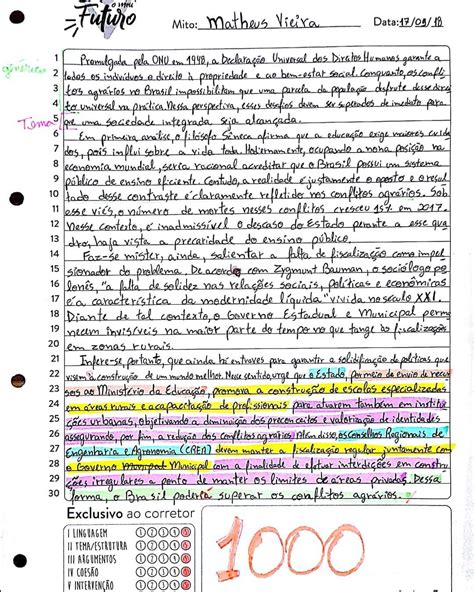 o meu
Futuro
Mito: Matheus Vieira Data: 17/09/18
genérico
Tema
1 Promulgada pela ONU em 1948, a Declaração Universal dos Direitos Humanos garante a
2 todos os indivíduos o direito à propriedade e ao bem-estar social. Conquanto, os confli
3 tos agrários no Brasil impossibilitam que uma parcela da população desfrute desse direi
4 to universal na prática. Nessa perspectiva, esses desafios devem ser superados de imediato para
5 que uma sociedade integrada seja alcançada.
6 Em primeira análise, o filósofo Sêneca afirma que a educação exige maiores cuida
7 dos, pois influi sobre a vida toda. Hodiernamente, ocupando a nona posição na
8 economia mundial, seria racional acreditar que o Brasil possui um sistema
9 público de ensino eficiente. Contudo, a realidade é justamente o oposto e o resul
10 tado desse contraste é claramente refletido nos conflitos agrários. Sob
11 esse viés, o número de mortes nesses conflitos cresceu 15% em 2017.
12 Nesse contexto, é inadmissível o descaso do Estado perante a esse qua
13 dro, haja vista a precariedade do ensino público.
14 Faz-se mister, ainda, salientar a falta de fiscalização como impul
15 sionador do problema. De acordo com Zygmunt Bauman, o sociólogo po
16 lonês, "a falta de solidez nas relações sociais, políticas e econômicas
17 é a característica da modernidade líquida" vivida no século XXI.
18 Diante de tal contexto, o Governo Estadual e Municipal perma
19 necem invisíveis na maior parte do tempo no que tange às fiscalizações
20 em zonas rurais.
21 Infere-se, portanto, que ainda há entraves para garantir a solidificação de políticas que
22 visem à construção de um mundo melhor. Nesse sentido, urge que o Estado, por meio do envio de recur
23 sos ao Ministério da Educação, promova a construção de escolas especializadas
24 em áreas rurais e a capacitação de profissionais para atuarem também em institui
25 ções urbanas, objetivando a diminuição dos preconceitos e valorização de identidades
26 assegurando, por fim, a redução dos conflitos agrários. Além disso, os Conselhos Regionais de
27 Engenharia e Agronomia (CREA) devem manter a fiscalização regular juntamente com
28 o Governo Municipal com a finalidade de efetuar interdições em constru
29 ções irregulares a ponto de manter os limites de áreas privadas. Dessa
30 forma, o Brasil poderia superar os conflitos agrários.
Exclusivo ao corretor
I LINGUAGEM 0 1 2 3 4 5
II TEMA/ESTRUTURA 0 1 2 3 4 5
III ARGUMENTOS 0 1 2 3 4 5
IV COESÃO 0 1 2 3 4 5
V INTERVENÇÃO 0 1 2 3 4 5
1000